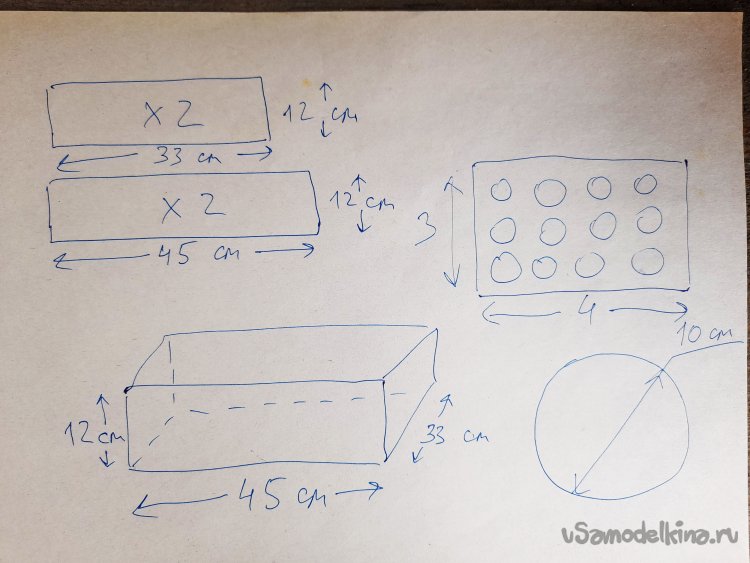 x 2
12 см
33 см
x 2
12 см
45 см
3
4
10 см
12 см
33 см
45 см
vSamodelkina.ru